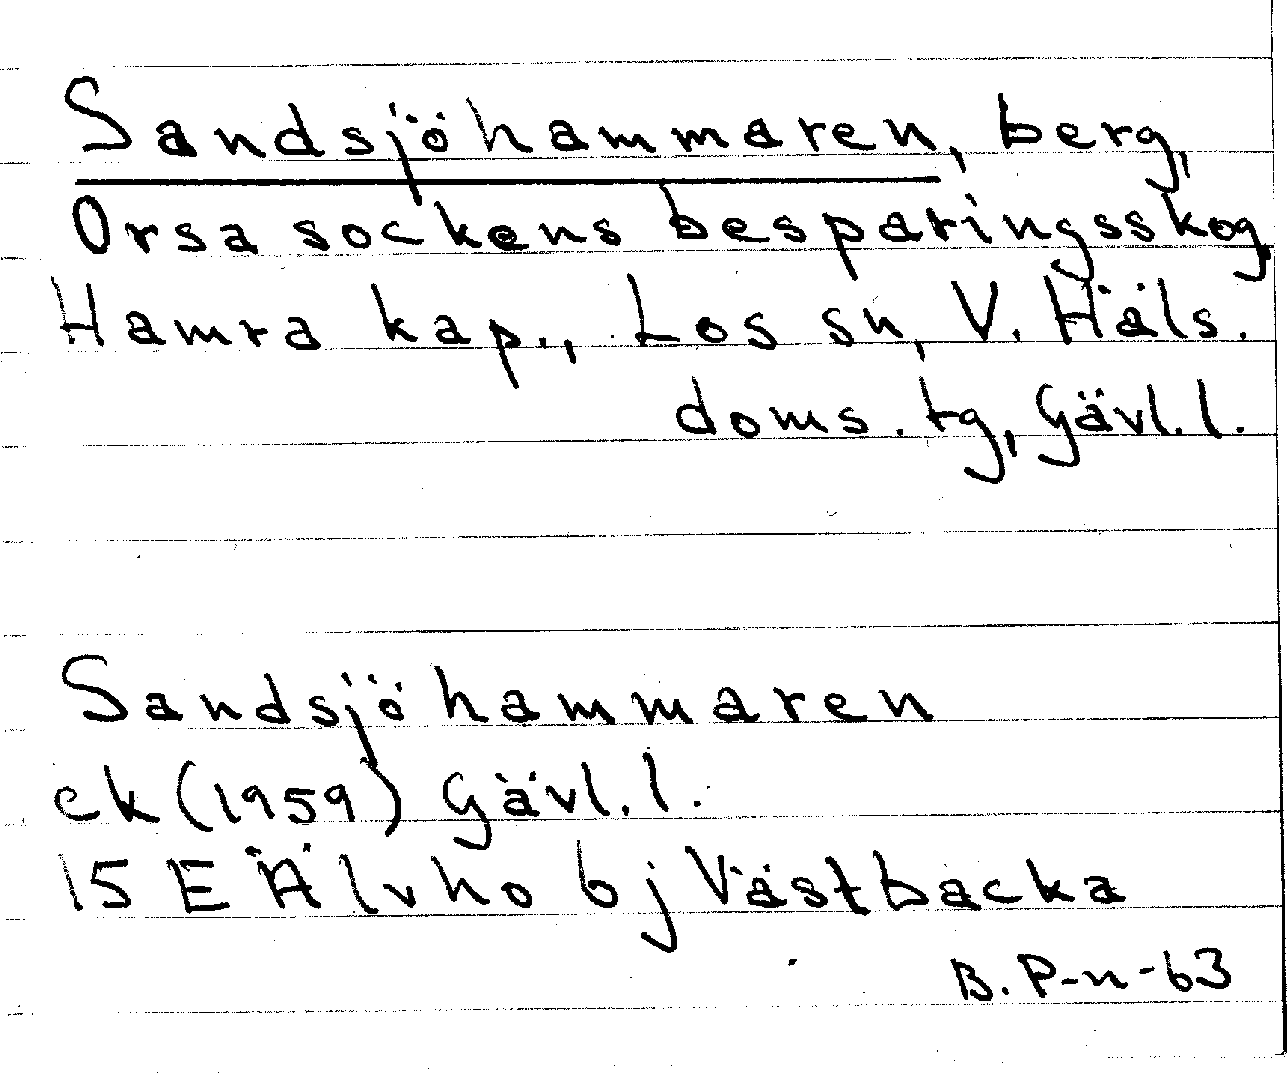 Sandsjöhammaren, berg,
Orsa sockens besparingsskog,
Hamra kap., Los sn, V. Häls.
doms. tg, Gävl. l.
Sandsjöhammaren
ek (1959) Gävl. l.
15 E Älvho 6j Västbacka
B. P-n-63